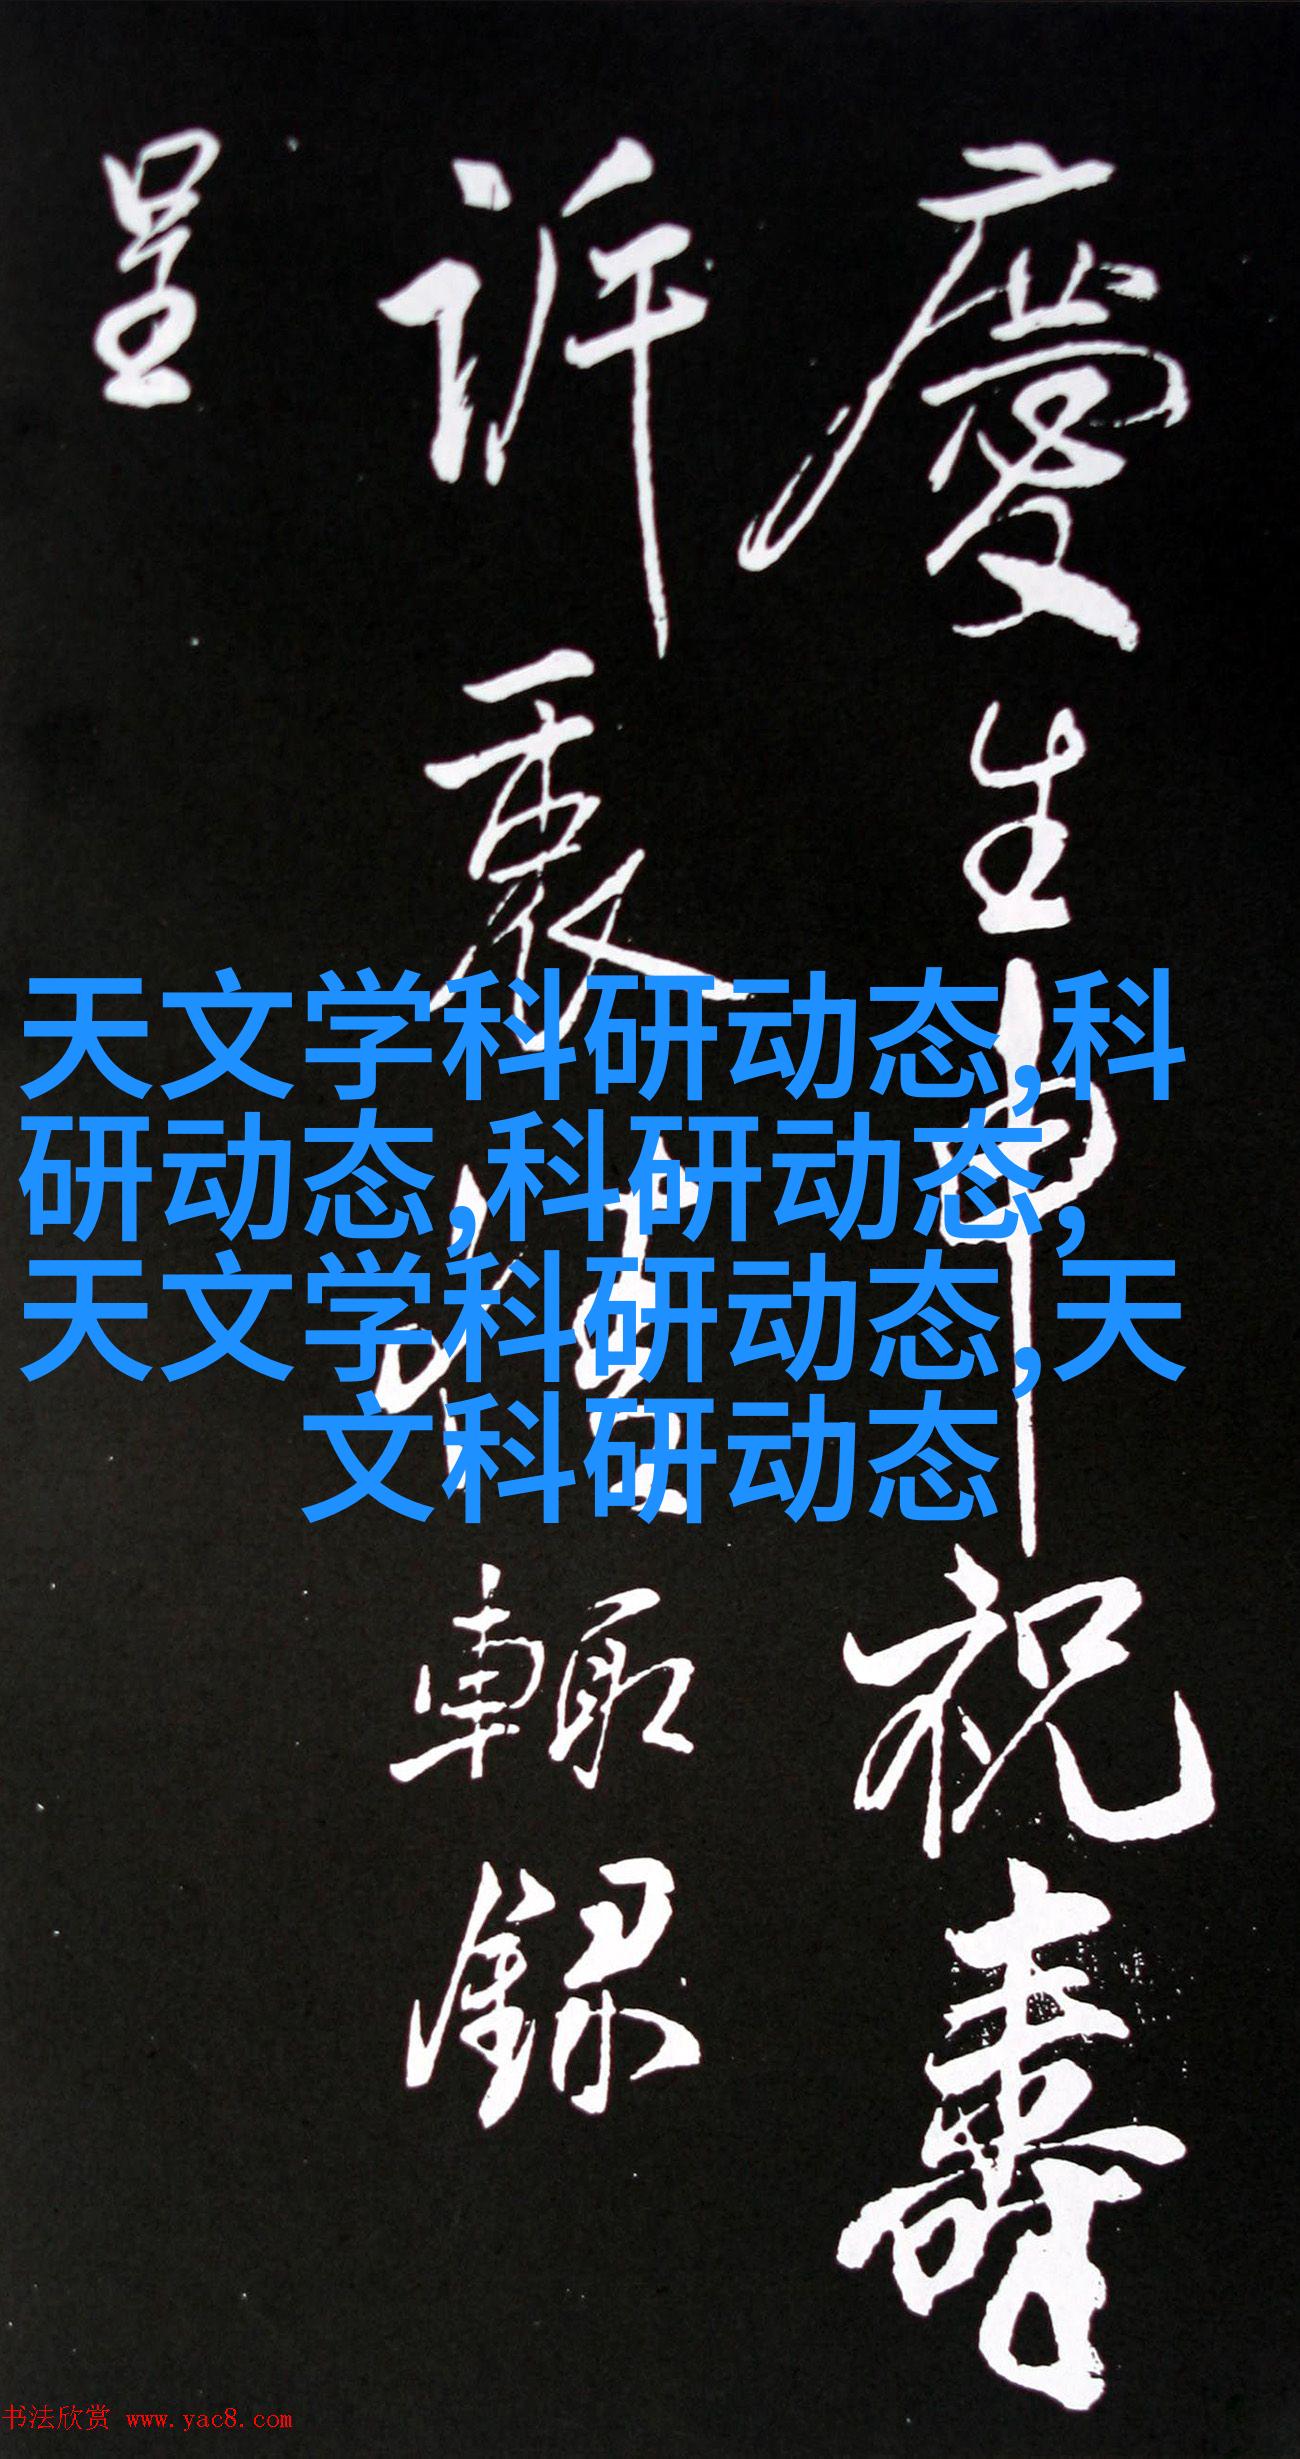 慶生申祝壽
訢裏懷輒録
呈
天文学科研动态,科
研动态,科研动态,
天文学科研动态,天
文科研动态
书法欣赏 www.yac8.com